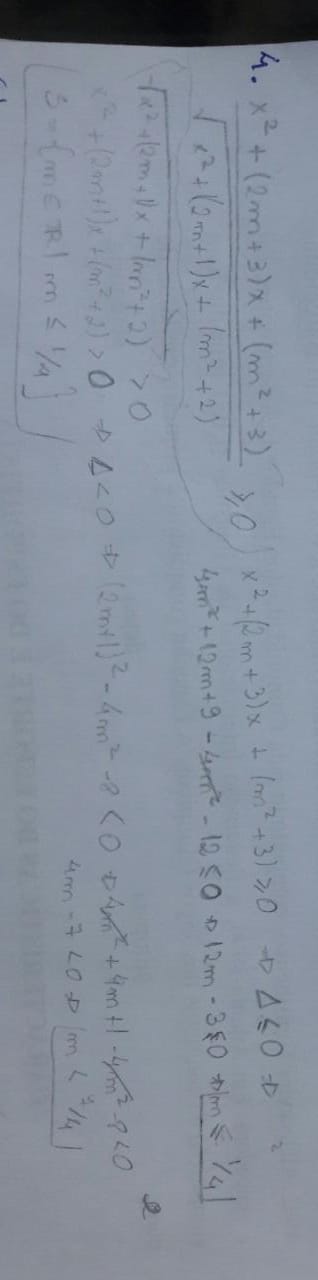 4. x² + (2m+3)x + (m²+3)
√x² + (2m+1)x + (m²+2) ≥ 0
x² + (2m+3)x + (m²+3) ≥ 0 ⇒ Δ ≤ 0 ⇒
4m² + 12m + 9 - 4m² - 12 ≤ 0 ⇒ 12m - 3 ≤ 0 ⇒ m ≤ 1/4
√x² + (2m+1)x + (m²+2) > 0
x² + (2m+1)x + (m²+2) > 0 ⇒ Δ < 0 ⇒ (2m+1)² - 4m² - 8 < 0 ⇒ 4m² + 4m + 1 - 4m² - 8 < 0
4m - 7 < 0 ⇒ m < 7/4
S = {m ∈ ℝ | m ≤ 1/4}